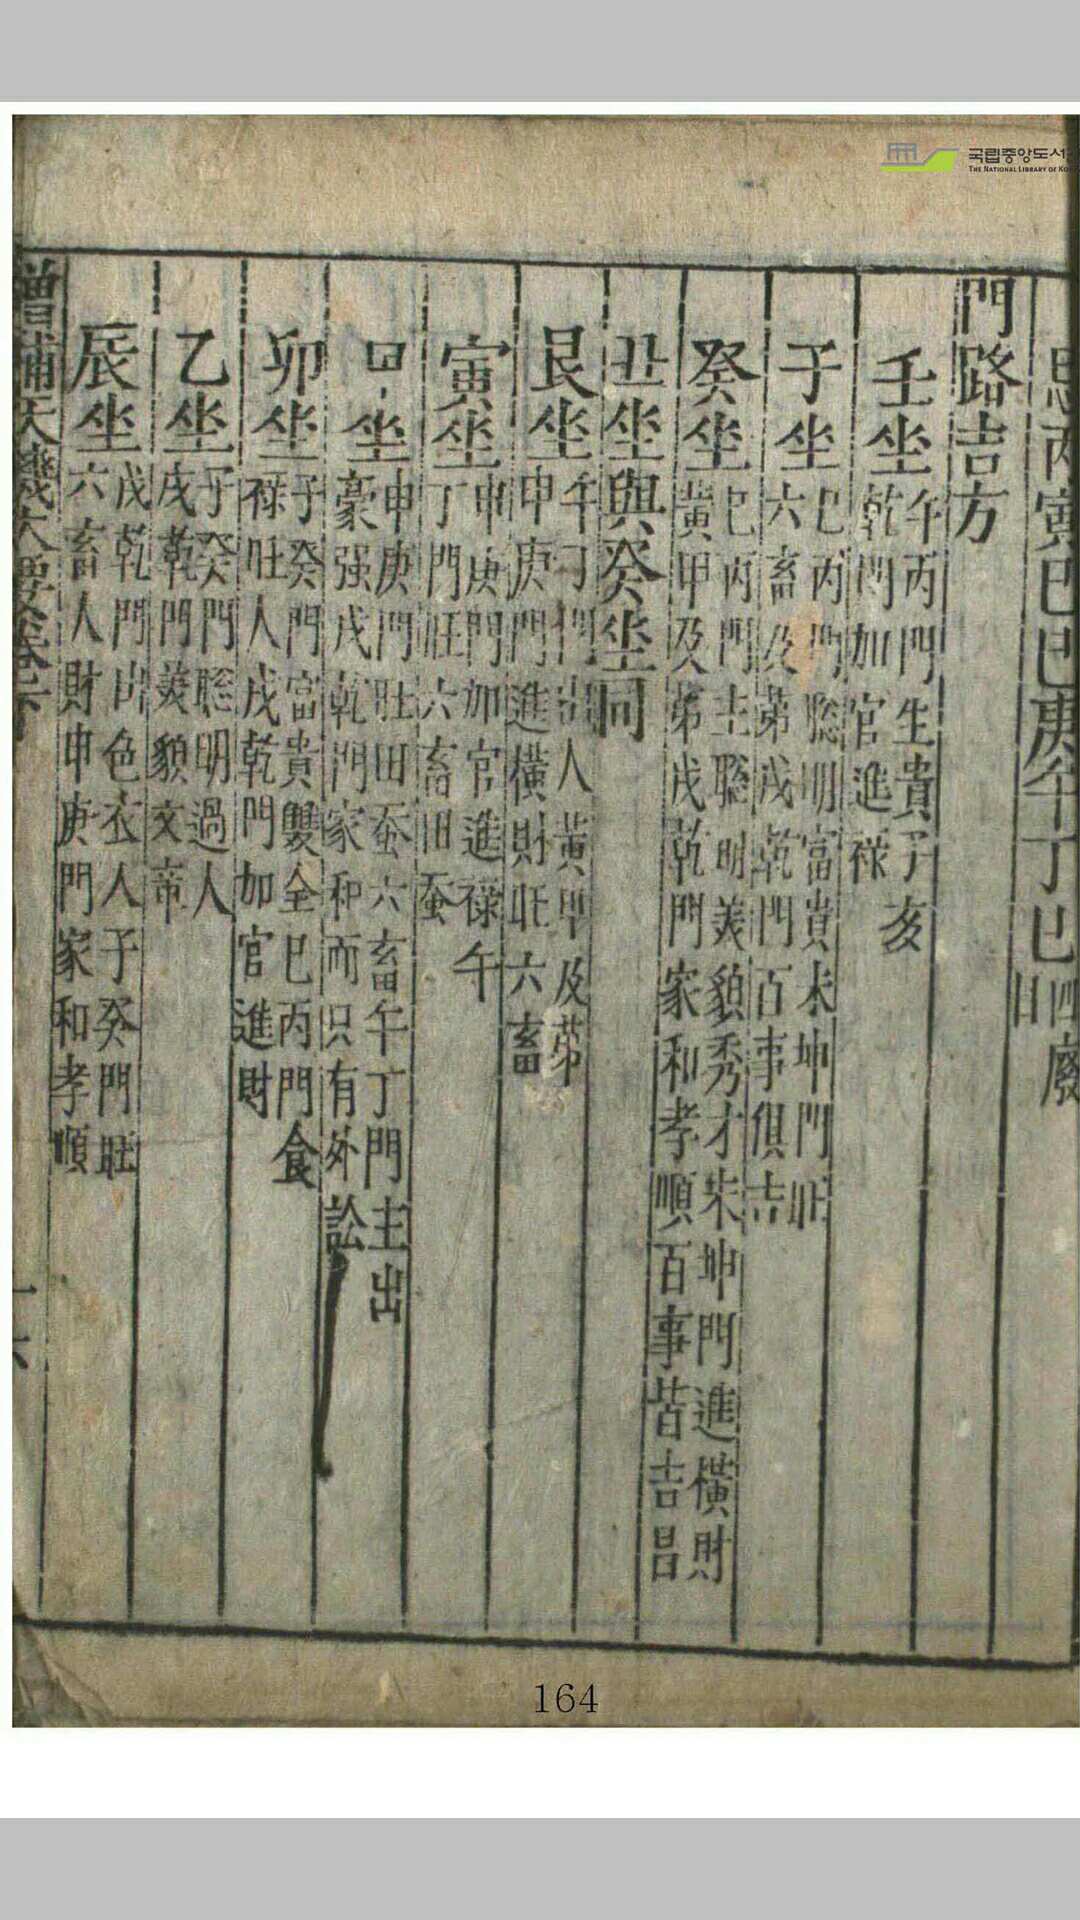 국립중앙도서
THE NATIONAL LIBRARY OF KO
丙寅己巳庚午丁巳四廢
日
門路吉方
壬坐
午丙門生貴子亥
乾門加官進祿
子坐
巳丙門聡明富貴未坤門旺
六畜及第戌乾門百事俱吉
癸坐
巳丙門主聡明美貌秀才未坤門進橫財
黃甲及第戌乾門家和孝順百事皆吉昌
丑坐與癸坐同
艮坐
午丁門出人黃甲及第
申庚門進橫財旺六畜
寅坐
申庚門加官進祿午
丁門旺六畜田蚕
甲坐
申庚門旺田蚕六畜午丁門主出
豪强戌乾門家和而只有外訟
卯坐
子癸門富貴雙全巳丙門食
祿旺人戌乾門加官進財
乙坐
子癸門聡明過人
戌乾門美貌文章
辰坐
戌乾門出色衣人子癸門旺
六畜人財申庚門家和孝順
增補天機大要卷之下
十六
164